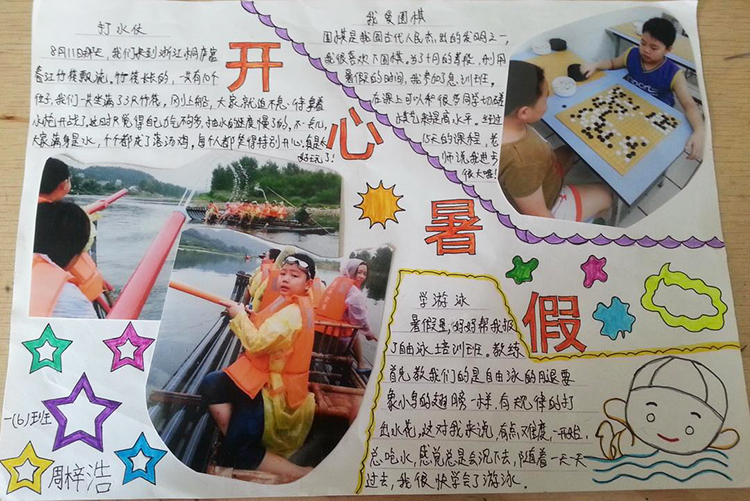 打水仗
8月11日那天,我们来到浙江桐庐富
春江竹筏漂流。竹筏长长的,一只有10个
位子,我们一共坐满了3只竹筏,刚上船,大家就迫不及待拿着
水炮开战了,这时只觉得自己力气不够多,抽水的速度慢了的,不一会儿,
大家满身是水,个个都成了落汤鸡,每个人都笑得特别开心,真是
好玩了!
开心暑假
我爱围棋
围棋是我国古代人民杰出的发明之一,
我很喜欢下围棋,当了4个月的寒假,利用
暑假的时间,我参加了急训班,
在课上可以和很多同学切磋
技艺来提高水平。经过
15天的课程,老
师说我进步
很大喔!
学游泳
暑假里,妈妈帮我报
了自由泳培训班。教练
首先教我们的是自由泳的腿要
象小鸟的翅膀一样,有规律的打
出水花,这对我来说,有点难度,一开始,
总吃水,感觉总是会沉下去,随着一天一天
过去,我很快学会了游泳.
一(6)班
周梓浩